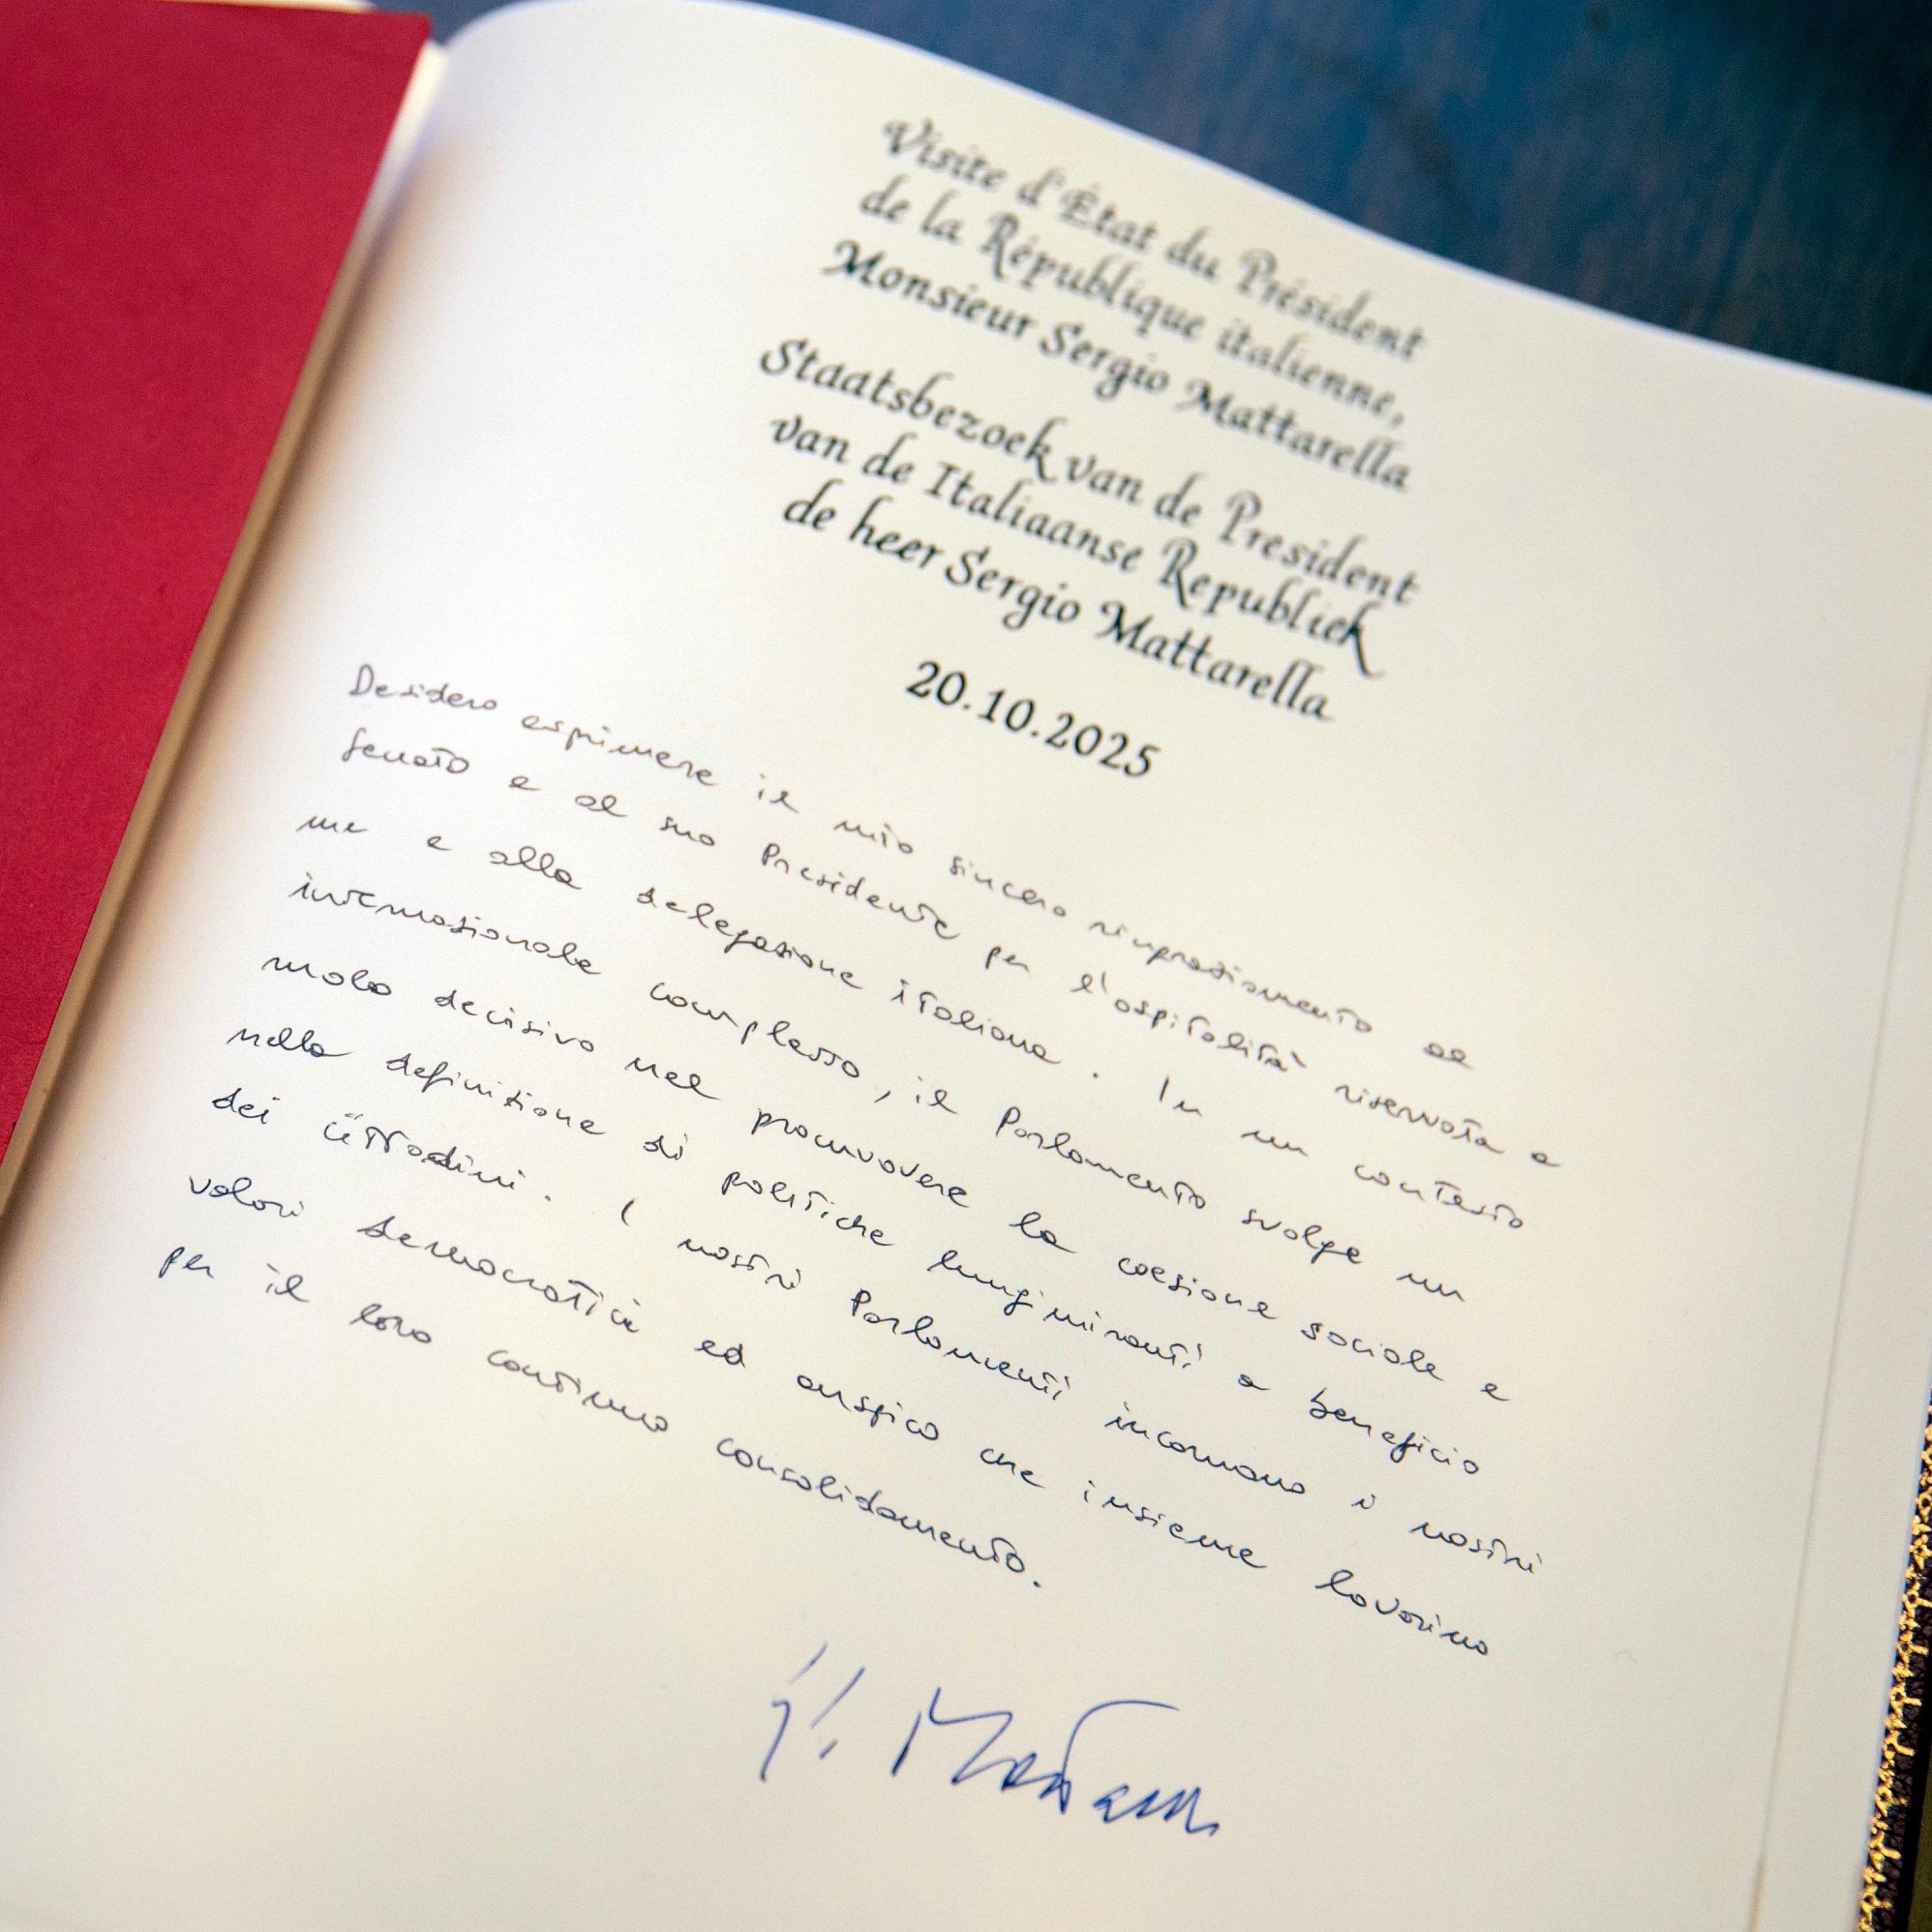 Visite d'État du Président
de la République italienne,
Monsieur Sergio Mattarella
Staatsbezoek van de President
van de Italiaanse Republiek
de heer Sergio Mattarella
20.10.2025
Desidero esprimere il mio sincero ringraziamento al
Senato e al suo Presidente per l'ospitalità riservata a
me e alla delegazione italiana. In un contesto
internazionale complesso, il Parlamento svolge un
ruolo decisivo nel promuovere la coesione sociale e
nella definizione di politiche lungimiranti a beneficio
dei cittadini. I nostri Parlamenti incarnano i nostri
valori democratici ed auspico che insieme lavorino
per il loro continuo consolidamento.